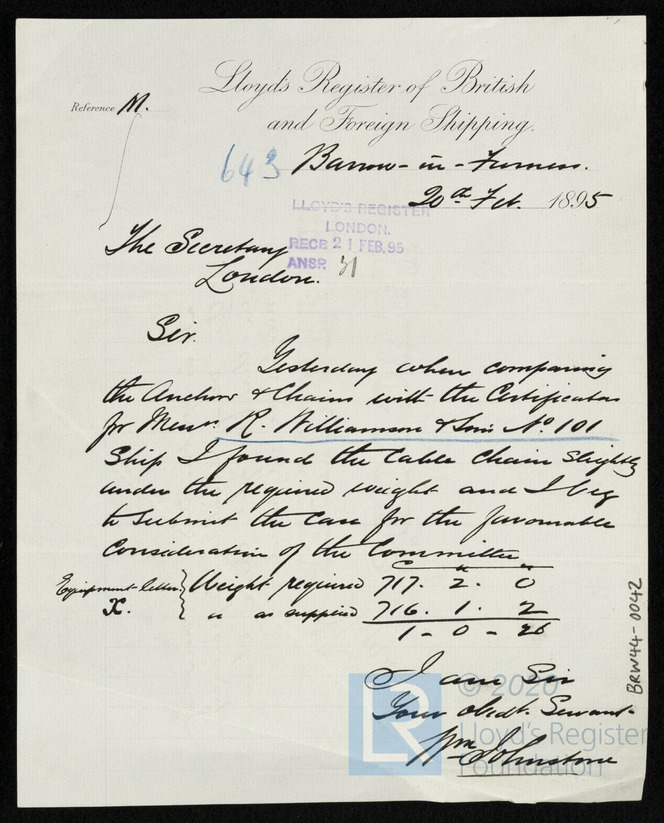 Lloyd's Register of British
and Foreign Shipping.
Reference M.
643
Barrow-in-Furness.
20th Feb. 1895
LLOYD'S REGISTER
LONDON.
RECD 21 FEB. 95
ANSR 31
The Secretary
London.
Sir.
Yesterday when comparing
the Anchors & Chains with the Certificates
for Messrs. R. Williamson & Sons No 101
Ship I found the Cable Chain slightly
under the required weight and I beg
to submit the case for the favourable
Consideration of the Committee
C " "
Equipment letter } Weight required 717. 2. 0
X. } " as supplied 716. 1. 2
1 - 0 - 26
I am Sir
Your obedt. Servant
Wm Johnstone
BRW44-0042
© 2020
Lloyd's Register
Foundation
LR